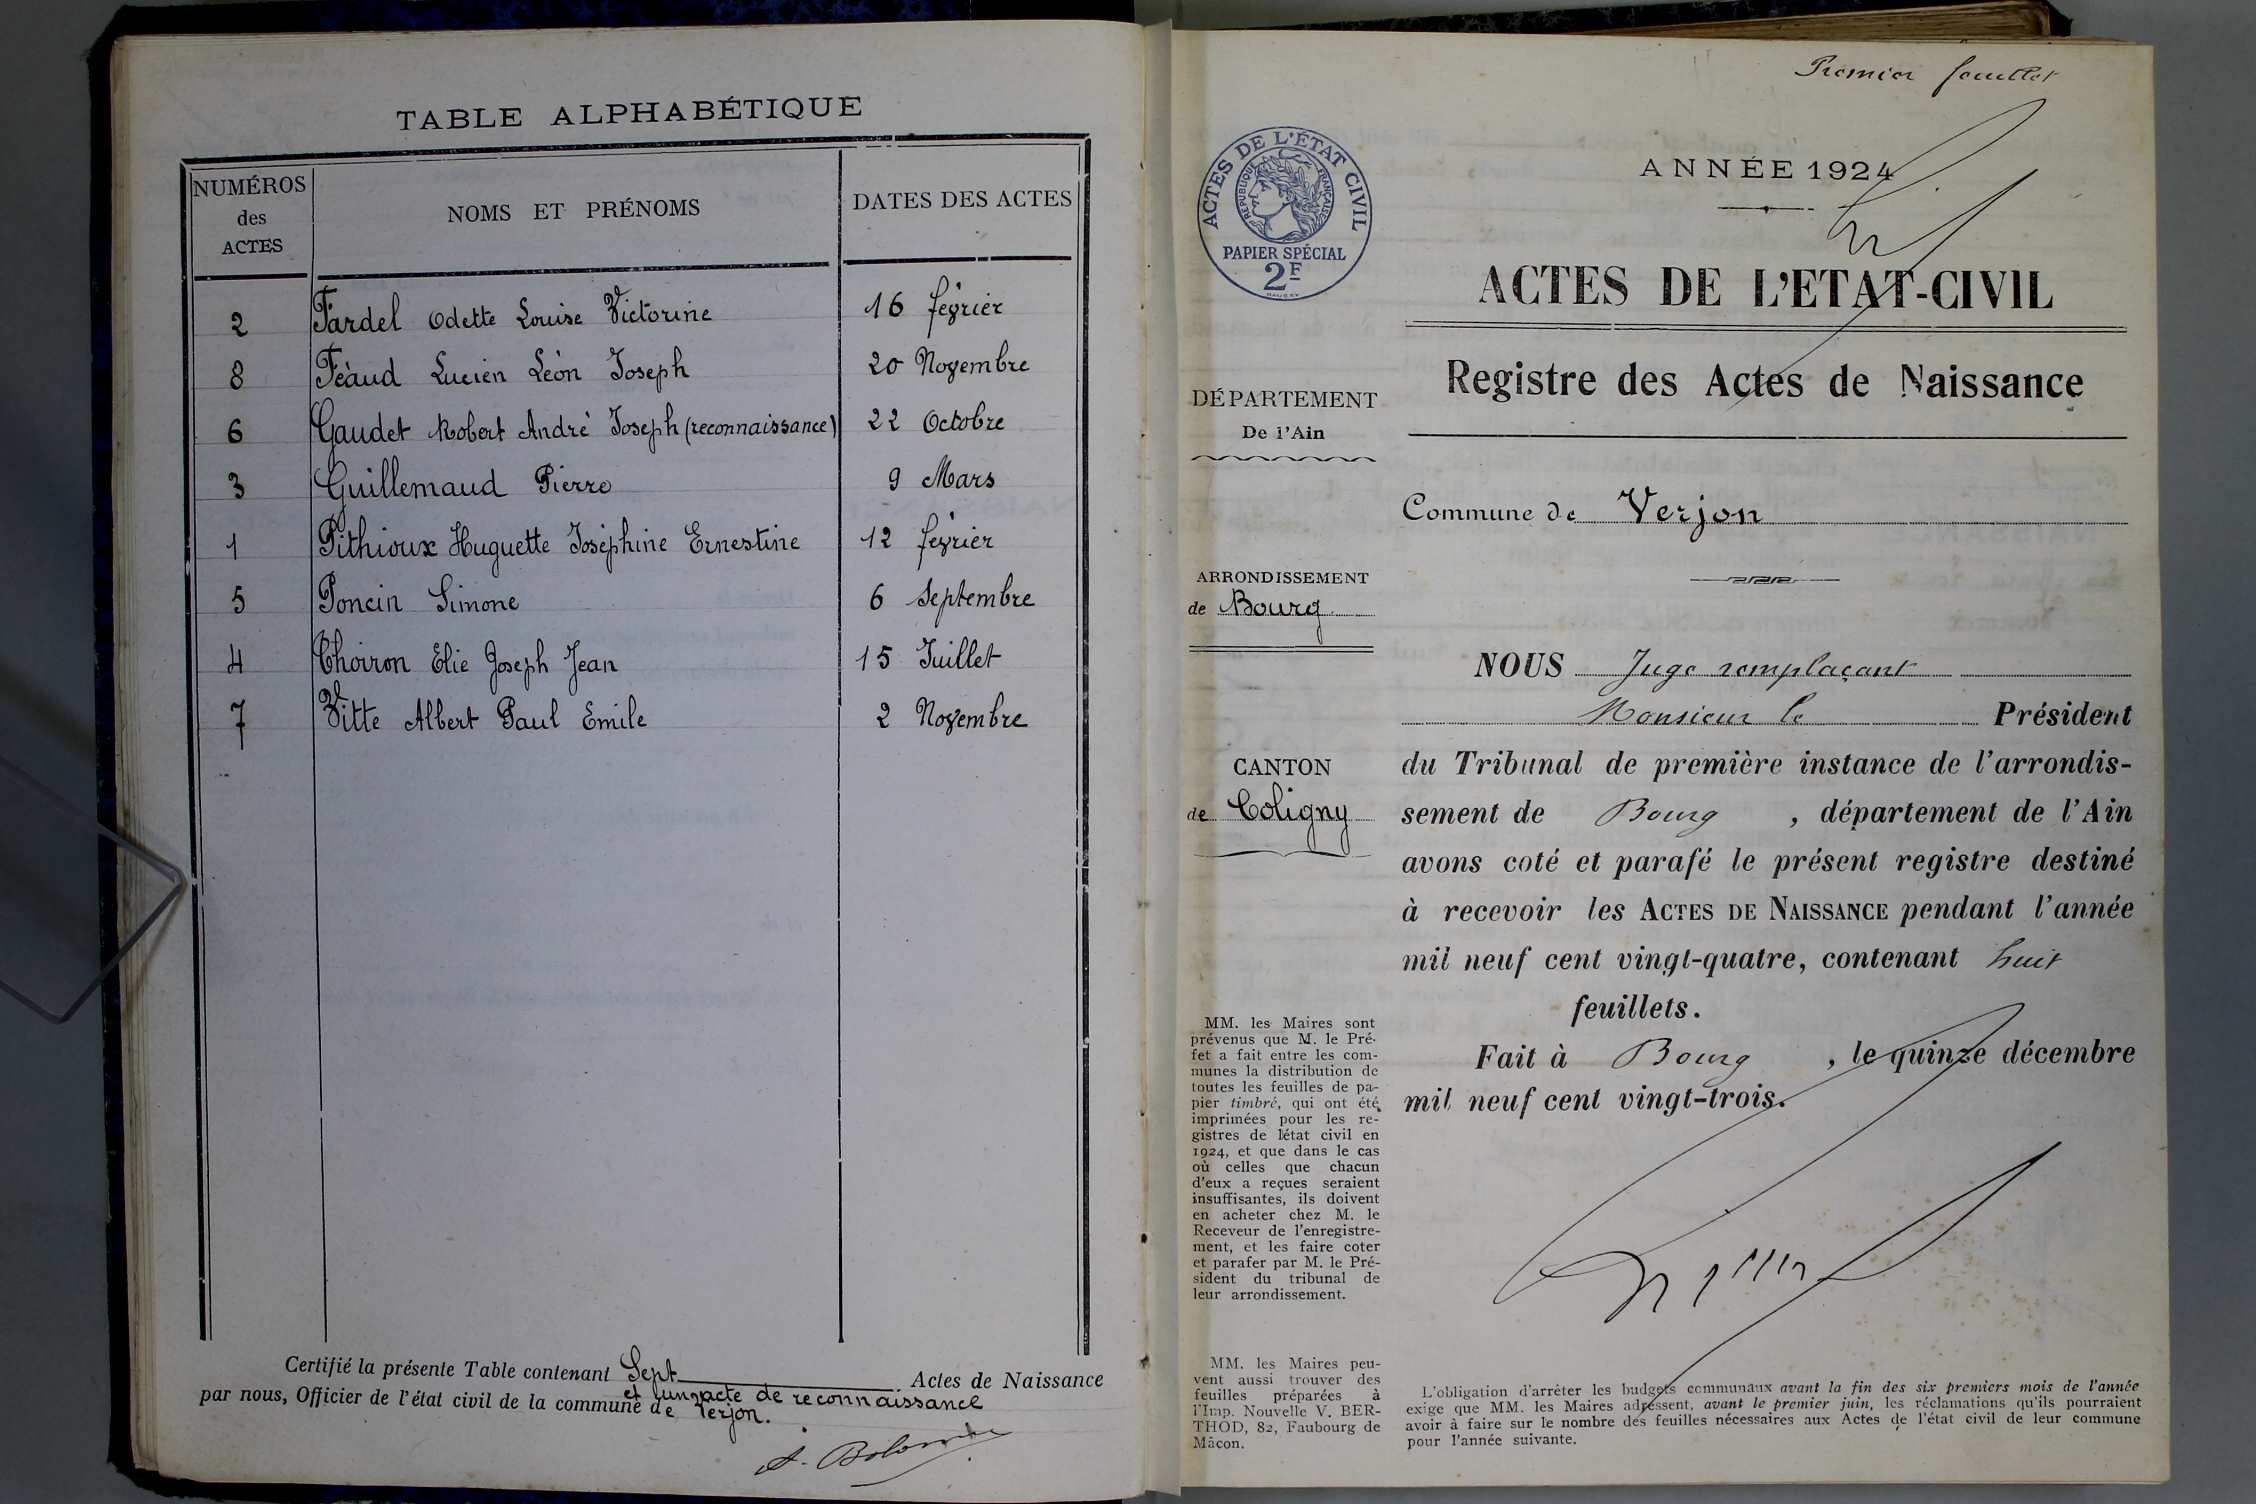 TABLE ALPHABÉTIQUE
NUMÉROS des ACTES
NOMS ET PRÉNOMS
DATES DES ACTES
2 Fardel Odette Louise Victorine 16 février
8 Féaud Lucien Léon Joseph 20 Novembre
6 Gaudet Robert André Joseph (reconnaissance) 22 Octobre
3 Guillemaud Pierre 9 Mars
1 Pithioux Huguette Joséphine Ernestine 12 février
5 Poncin Simone 6 Septembre
4 Thoiron Elie Joseph Jean 15 Juillet
7 Vitte Albert Paul Emile 2 Novembre
Certifié la présente Table contenant Sept Actes de Naissance
et un acte de reconnaissance
par nous, Officier de l'état civil de la commune de Verjon.
Premier feuillet
ACTES DE L'ÉTAT CIVIL
RÉPUBLIQUE FRANÇAISE
PAPIER SPÉCIAL
2F
ANNÉE 1924
ACTES DE L'ETAT-CIVIL
Registre des Actes de Naissance
DÉPARTEMENT
De l'Ain
Commune de Verjon
ARRONDISSEMENT
de Bourg
CANTON
de Coligny
NOUS Juge remplaçant
Monsieur le Président
du Tribunal de première instance de l'arrondis-
sement de Bourg , département de l'Ain
avons coté et parafé le présent registre destiné
à recevoir les ACTES DE NAISSANCE pendant l'année
mil neuf cent vingt-quatre, contenant huit
feuillets.
Fait à Bourg , le quinze décembre
mil neuf cent vingt-trois.
MM. les Maires sont
prévenus que M. le Pré-
fet a fait entre les com-
munes la distribution de
toutes les feuilles de pa-
pier timbré, qui ont été
imprimées pour les re-
gistres de l'état civil en
1924, et que dans le cas
où celles que chacun
d'eux a reçues seraient
insuffisantes, ils doivent
en acheter chez M. le
Receveur de l'enregistre-
ment, et les faire coter
et parafer par M. le Pré-
sident du tribunal de
leur arrondissement.
MM. les Maires peu-
vent aussi trouver des
feuilles préparées à
l'Imp. Nouvelle V. BER-
THOD, 82, Faubourg de
Mâcon.
L'obligation d'arrêter les budgets communaux avant la fin des six premiers mois de l'année
exige que MM. les Maires adressent, avant le premier juin, les réclamations qu'ils pourraient
avoir à faire sur le nombre des feuilles nécessaires aux Actes de l'état civil de leur commune
pour l'année suivante.